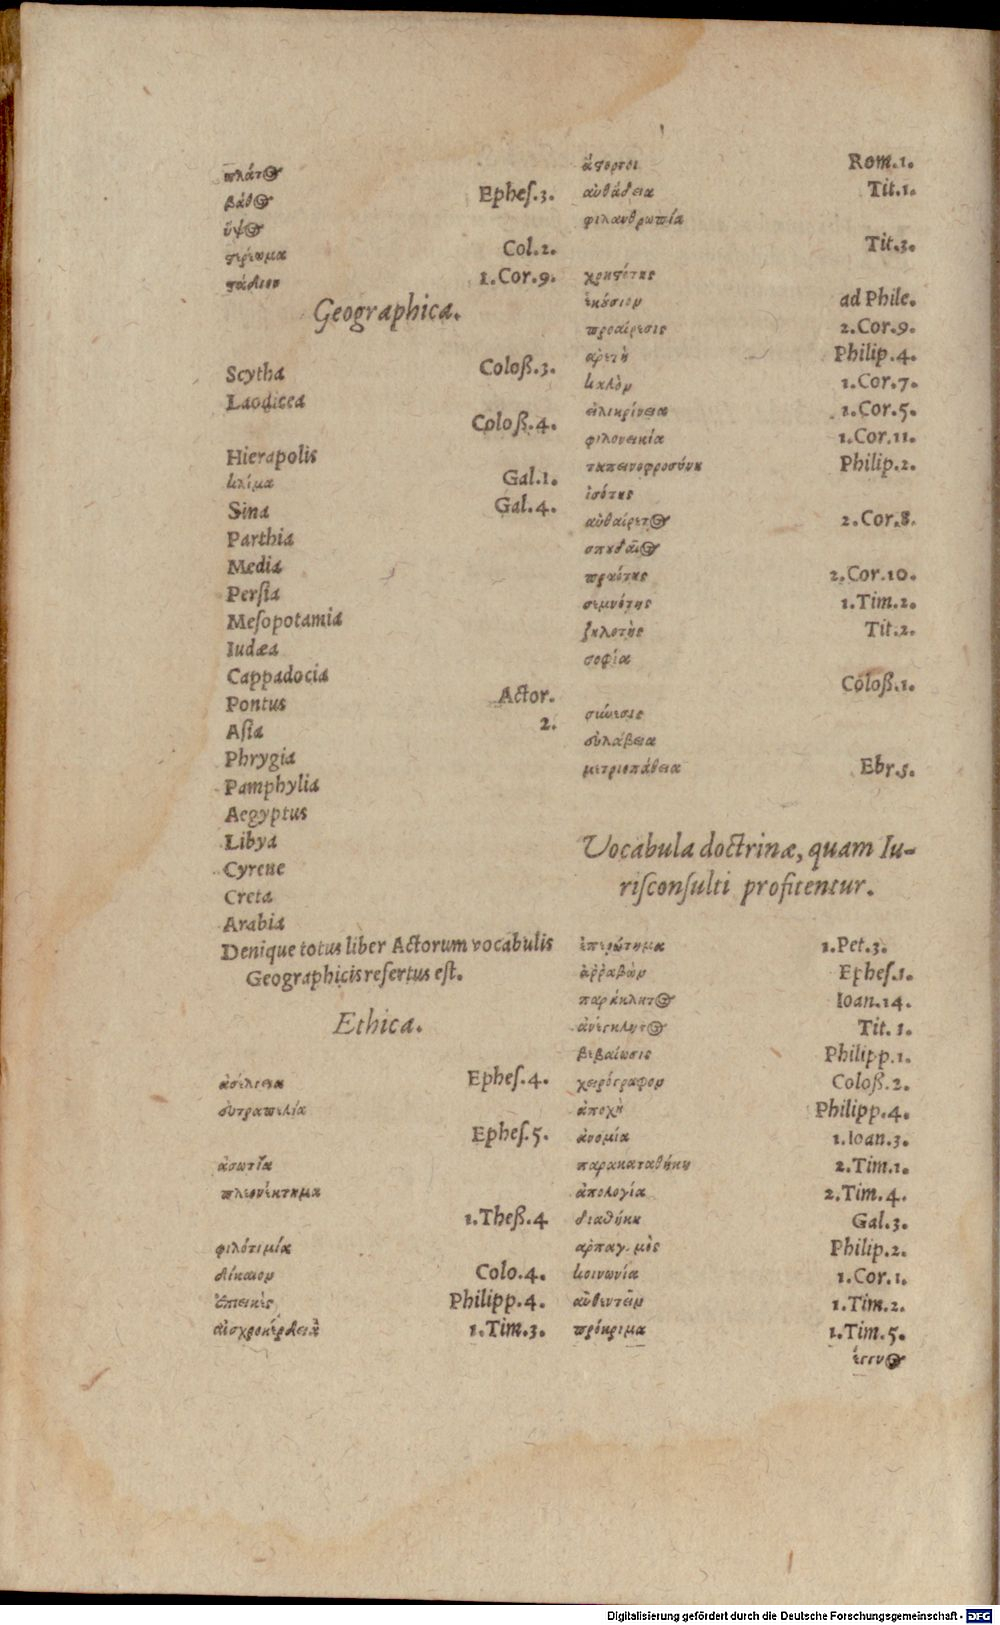 πλάτος
βάθος Ephes.3.
ὕψος
στερέωμα Col.2.
στάδιον 1.Cor.9.
Geographica.
Scytha Coloß.3.
Laodicea
Coloß.4.
Hierapolis
κλίμα Gal.1.
Sina Gal.4.
Parthia
Media
Persia
Mesopotamia
Iudæa
Cappadocia
Pontus Actor.
Asia 2.
Phrygia
Pamphylia
Aegyptus
Libya
Cyrene
Creta
Arabia
Denique totus liber Actorum vocabulis
Geographicis refertus est.
Ethica.
ἀσέλγεια Ephes.4.
εὐτραπελία
Ephes.5.
ἀσωτία
πλεονέκτημα
1.Theß.4
φιλότιμία
δίκαιον Colo.4.
ἐπιεικὲς Philipp.4.
αἰσχροκέρδεια 1.Tim.3.
ἄστοργοι Rom.1.
αὐθάδεια Tit.1.
φιλανθρωπία
Tit.3.
χρηστότης
ἑκούσιον ad Phile.
προαίρεσις 2.Cor.9.
ἀρετὴ Philip.4.
καλὸν 1.Cor.7.
εἰλικρίνεια 1.Cor.5.
φιλονεικία 1.Cor.11.
ταπεινοφροσύνη Philip.2.
ἰσότης
αὐθαίρετος 2.Cor.8.
σπουδαῖος
πραότης 2.Cor.10.
σεμνότης 1.Tim.2.
ζηλοτὴς Tit.2.
σοφία
Coloß.1.
σύνεσις
εὐλάβεια
μετριοπάθεια Ebr.5.
Vocabula doctrinæ, quam Iu-
risconsulti profitentur.
ἐπερώτημα 1.Pet.3.
ἀῤῥαβὼν Ephes.1.
παράκλητος Ioan.14.
ἀνέγκλητος Tit.1.
βεβαίωσις Philipp.1.
χειρόγραφον Coloß.2.
ἀποχὴ Philipp.4.
ἀνομία 1.Ioan.3.
παρακαταθήκη 2.Tim.1.
ἀπολογία 2.Tim.4.
διαθήκη Gal.3.
ἁρπαγμὸς Philip.2.
κοινωνία 1.Cor.1.
αὐθεντεῖν 1.Tim.2.
πρόκριμα 1.Tim.5.
ἔγγυος
Digitalisierung gefördert durch die Deutsche Forschungsgemeinschaft - DFG